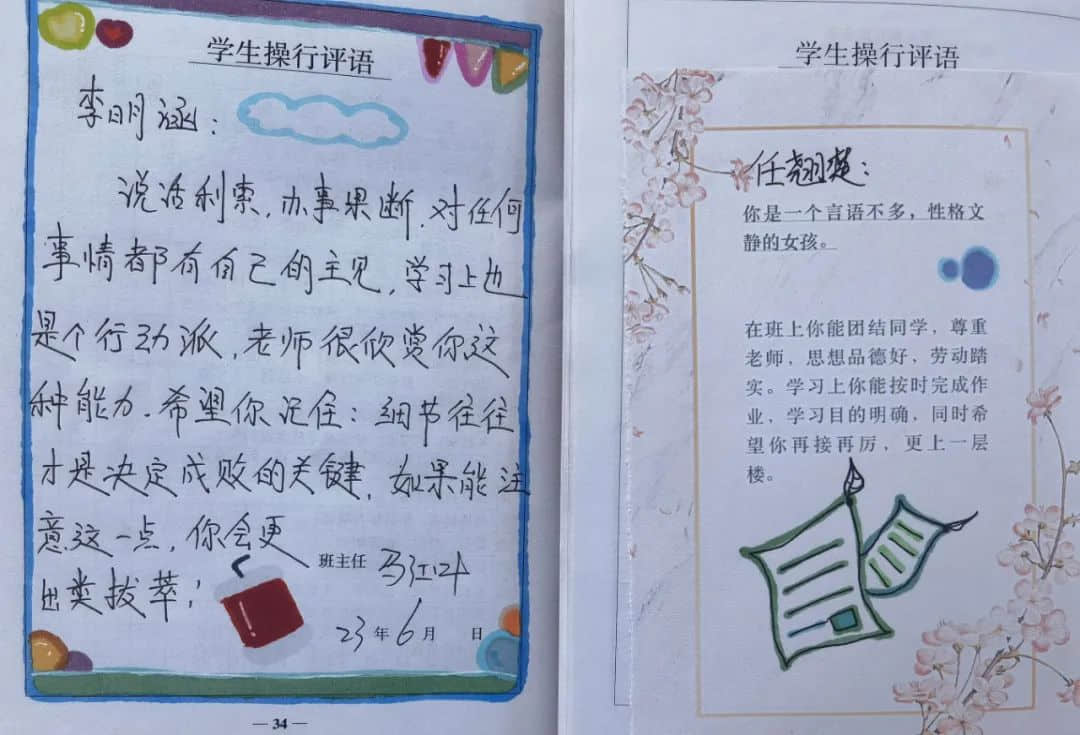 学生操行评语
李明涵：
说话利索，办事果断，对任何
事情都有自己的主见，学习上也
是个行动派，老师很欣赏你这
种能力．希望你记住：细节往往
才是决定成败的关键，如果能注
意这一点，你会更
出类拔萃！
班主任
23年6月 日
— 34 —
学生操行评语
任翘楚：
你是一个言语不多，性格文
静的女孩。
在班上你能团结同学，尊重
老师，思想品德好，劳动踏
实。学习上你能按时完成作
业，学习目的明确，同时希
望你再接再厉，更上一层
楼。